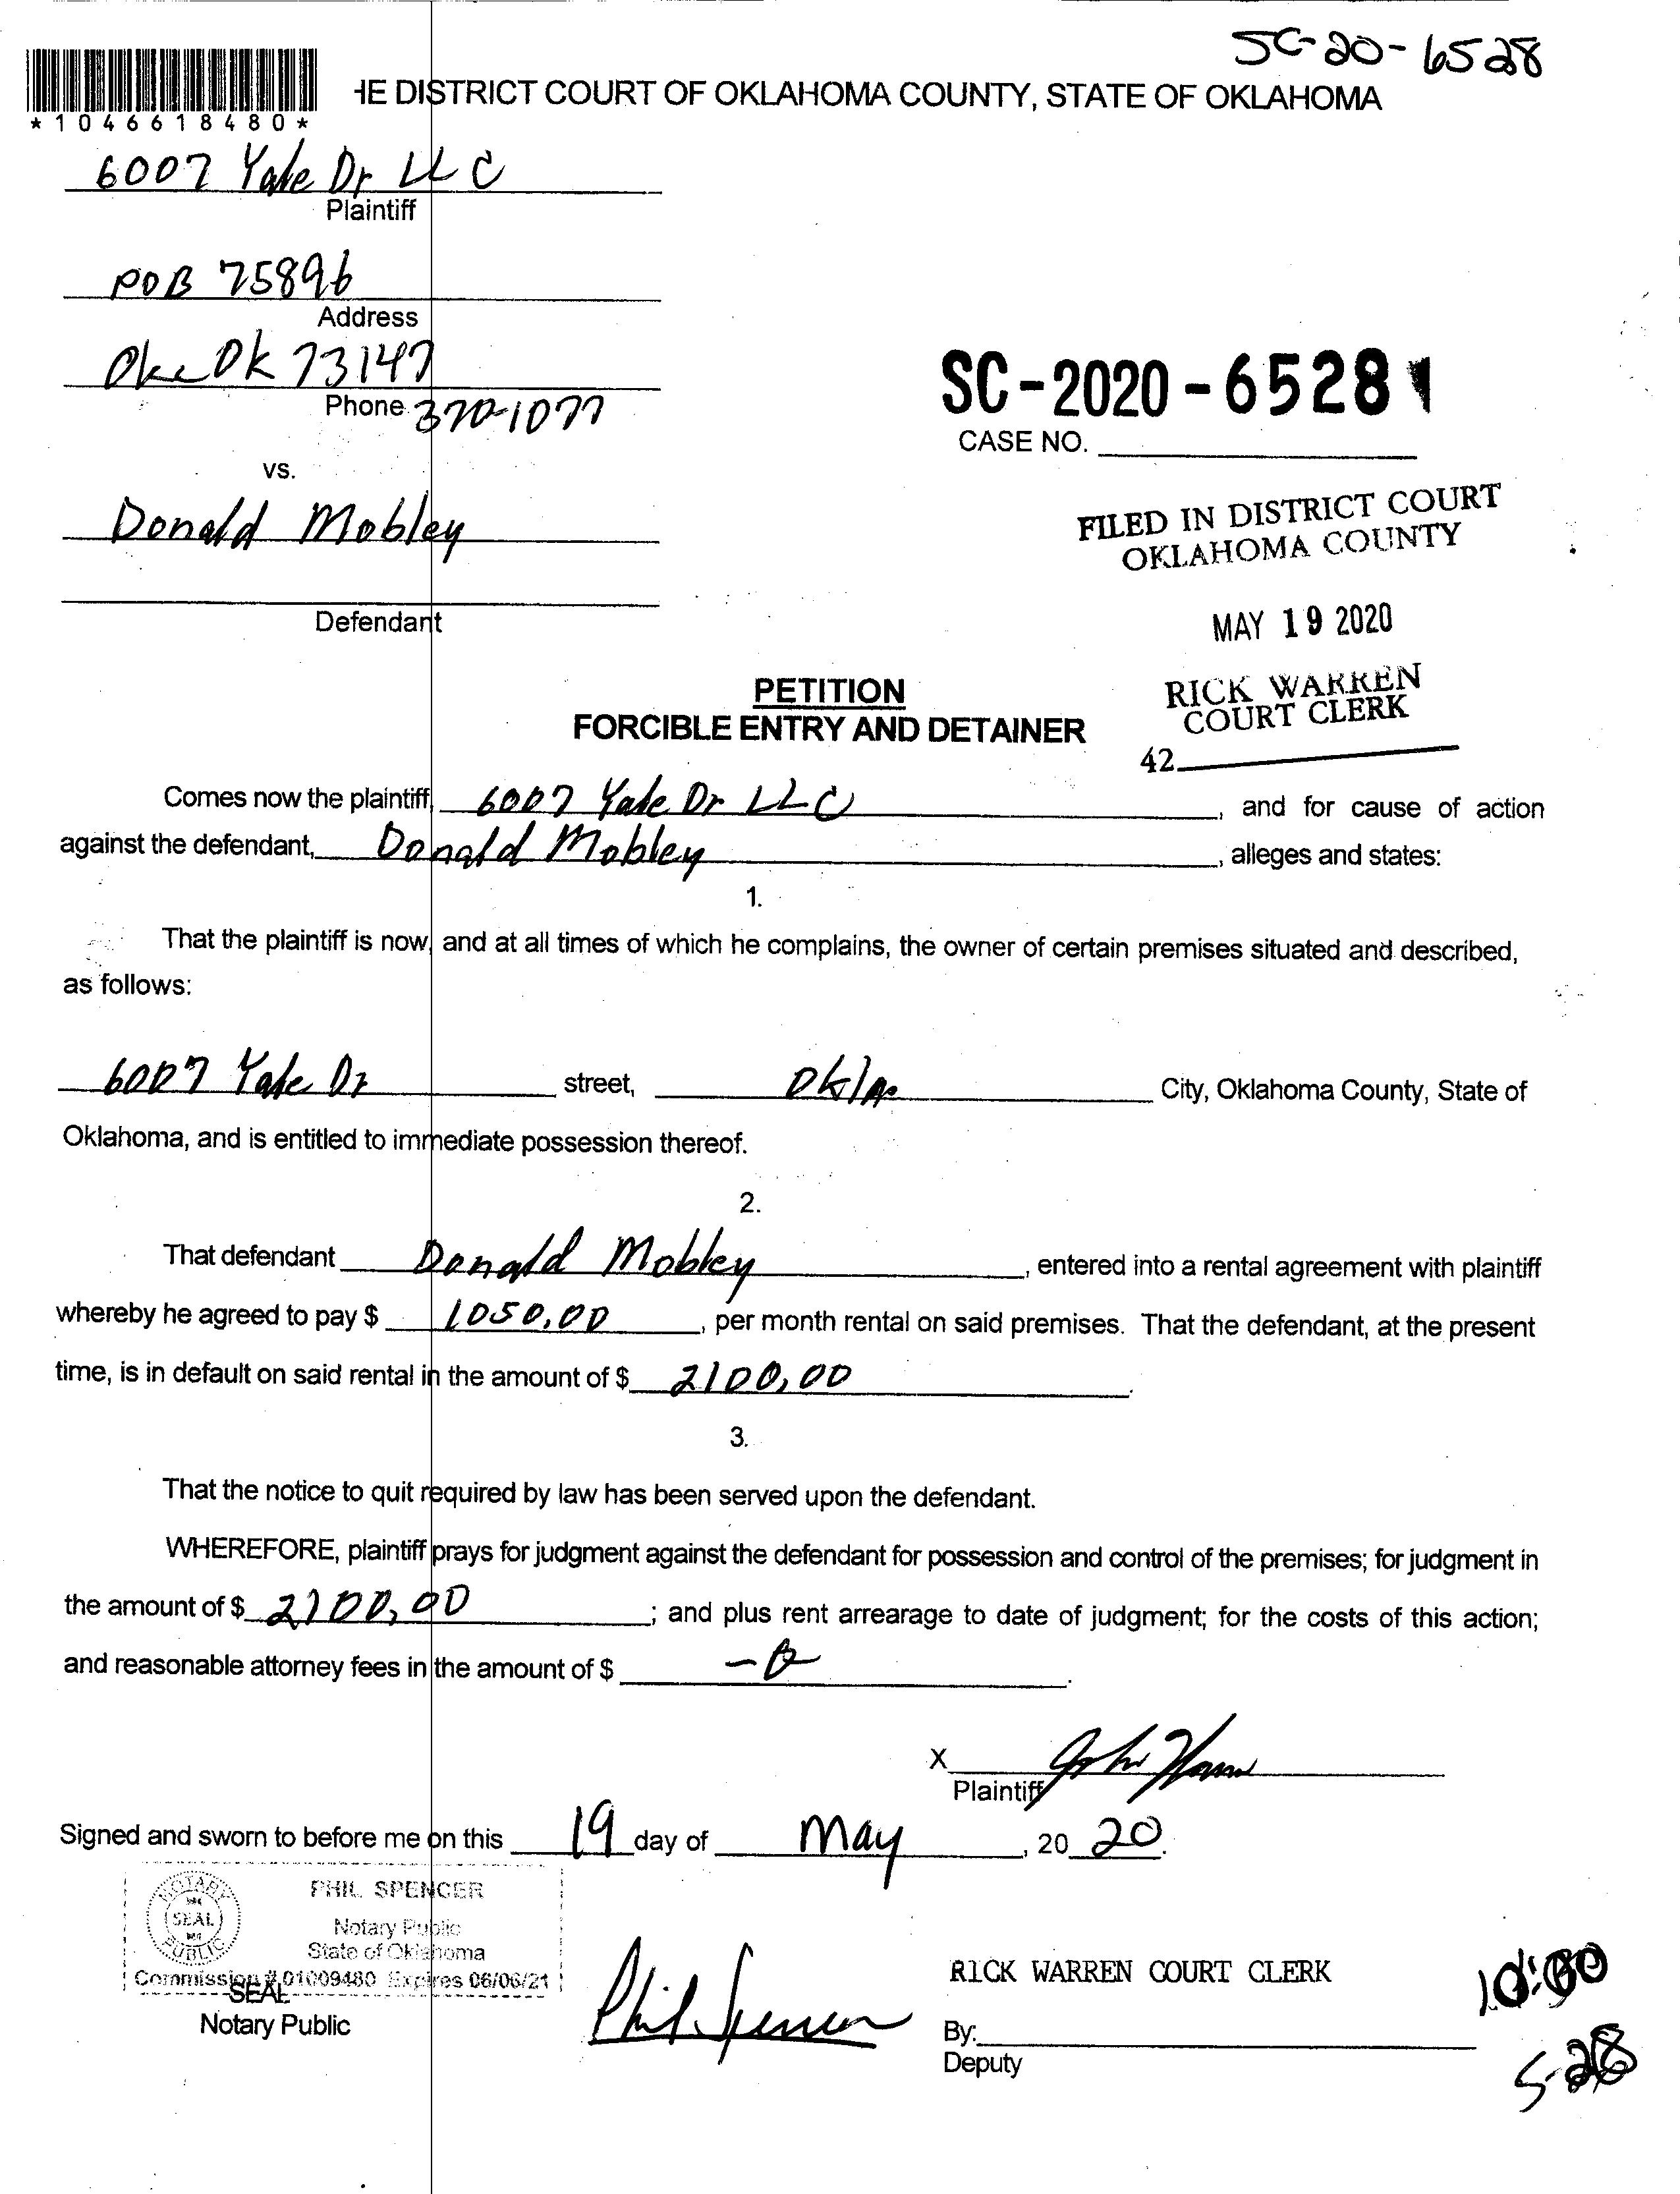 SC-20-6528
HE DISTRICT COURT OF OKLAHOMA COUNTY, STATE OF OKLAHOMA
*1046618480*
6007 Yale Dr LLC
Plaintiff
POB 75896
Address
Okc Ok 73147
Phone 370-1077
SC-2020-6528
CASE NO.
vs.
Donald Mobley
Defendant
FILED IN DISTRICT COURT
OKLAHOMA COUNTY
MAY 19 2020
RICK WARREN
COURT CLERK
42
PETITION
FORCIBLE ENTRY AND DETAINER
Comes now the plaintiff, 6007 Yale Dr LLC, and for cause of action
against the defendant, Donald Mobley, alleges and states:
1.
That the plaintiff is now, and at all times of which he complains, the owner of certain premises situated and described,
as follows:
6007 Yale Dr street, Okla City, Oklahoma County, State of
Oklahoma, and is entitled to immediate possession thereof.
2.
That defendant Donald Mobley, entered into a rental agreement with plaintiff
whereby he agreed to pay $ 1050.00, per month rental on said premises. That the defendant, at the present
time, is in default on said rental in the amount of $ 2100.00.
3.
That the notice to quit required by law has been served upon the defendant.
WHEREFORE, plaintiff prays for judgment against the defendant for possession and control of the premises; for judgment in
the amount of $ 2100.00; and plus rent arrearage to date of judgment; for the costs of this action;
and reasonable attorney fees in the amount of $ -0.
X
Plaintiff
Signed and sworn to before me on this 19 day of May, 20 20.
NOTARY
SEAL
PUBLIC
PHIL SPENCER
Notary Public
State of Oklahoma
Commission # 01009480 Expires 06/06/21
SEAL
Notary Public
Phil Spencer
RICK WARREN COURT CLERK
By:
Deputy
10:00
5-28